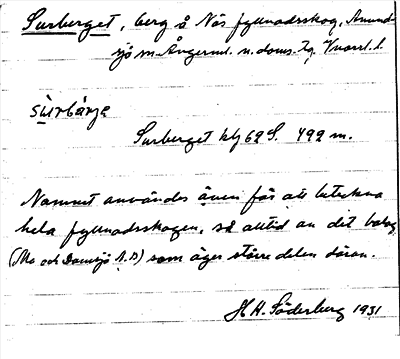 Surberget, berg å Näs fyllnadsskog, Anund-
sjö sn. Ångerml. n. doms. tg. Vnorrl. l.
sùrbárjə
Surberget hbl 62 S. 492 m.
Namnet användes även för att beteckna
hela fyllnadsskogen, så alltid av det bolag
(Mo och Domsjö A.B) som äger större delen därav.
H.H. Söderberg 1931